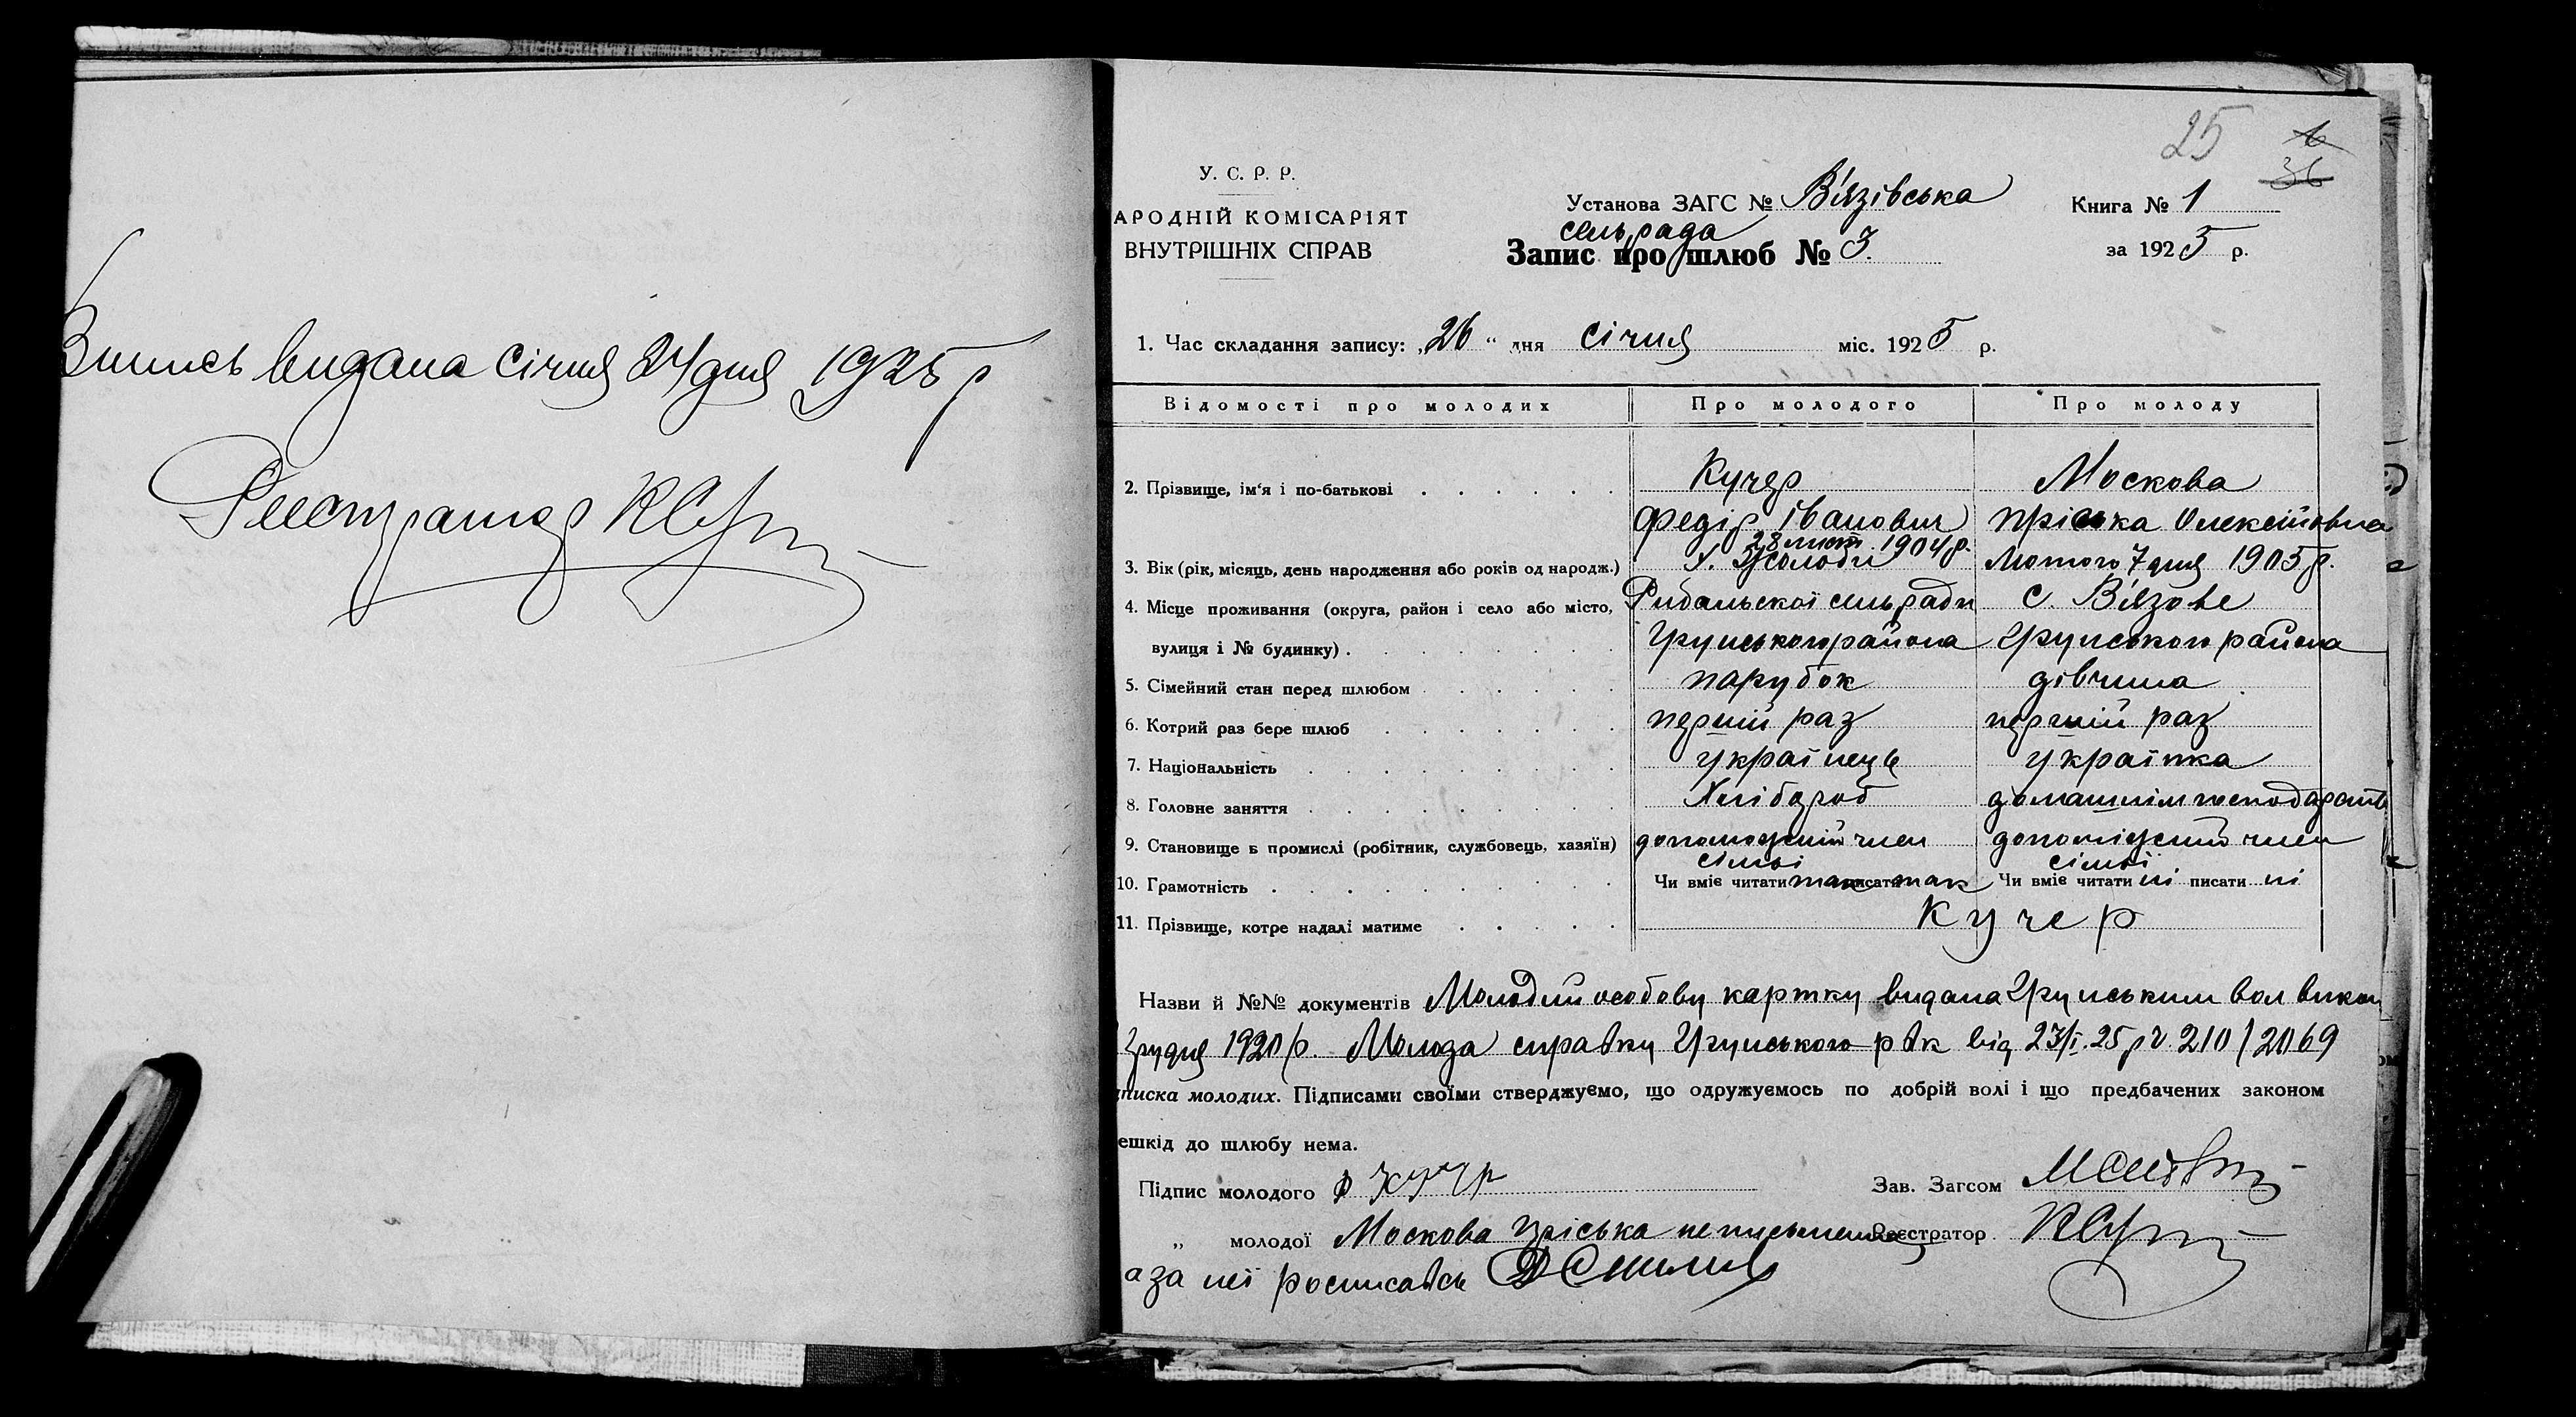 Выпись видана січня 24 дня 1925 р
Реєстратор
25
36
У. С. Р. Р.
АРОДНІЙ КОМІСАРІЯТ
ВНУТРІШНІХ СПРАВ
Установа ЗАГС № В'язівська
сельрада
Запис про шлюб № 3.
Книга № 1
за 1925 р.
1. Час складання запису: „26" дня січня міс. 1925 р.
Відомості про молодих Про молодого Про молоду
2. Прізвище, ім'я і по-батькові Кучер Москова
Федір Іванович Пріська Олексіївна
28 лист. 1904 р.
3. Вік (рік, місяць, день народження або років од народж.) Лютого 7 дня 1905 р.
4. Місце проживання (округа, район і село або місто, Рибальскоі сельради с. В'язове
вулиця і № будинку) Грунського района Грунського района
5. Сімейний стан перед шлюбом парубок дівчина
6. Котрий раз бере шлюб перший раз перший раз
7. Національність українець українка
8. Головне заняття Хлібороб домашнім господарств
9. Становище в промислі (робітник, службовець, хазяїн) допоможний член допоміжний член
сімьі сімьі
10. Грамотність Чи вміє читати так писати так Чи вміє читати ні писати ні
11. Прізвище, котре надалі матиме Кучер
Назви й №№ документів Молодий особову картку видана Грунським вол викон
Грудня 1920 р. Молода справку Грунського рвк від 23/I.25 р № 210/2069
писка молодих. Підписами своїми стверджуємо, що одружуємось по добрій волі і що предбачених законом
ешкід до шлюбу нема.
Підпис молодого Ф Кучер Зав. Загсом
„ молодої Москова Пріська неписьменна Реєстратор
а за неї росписавсь